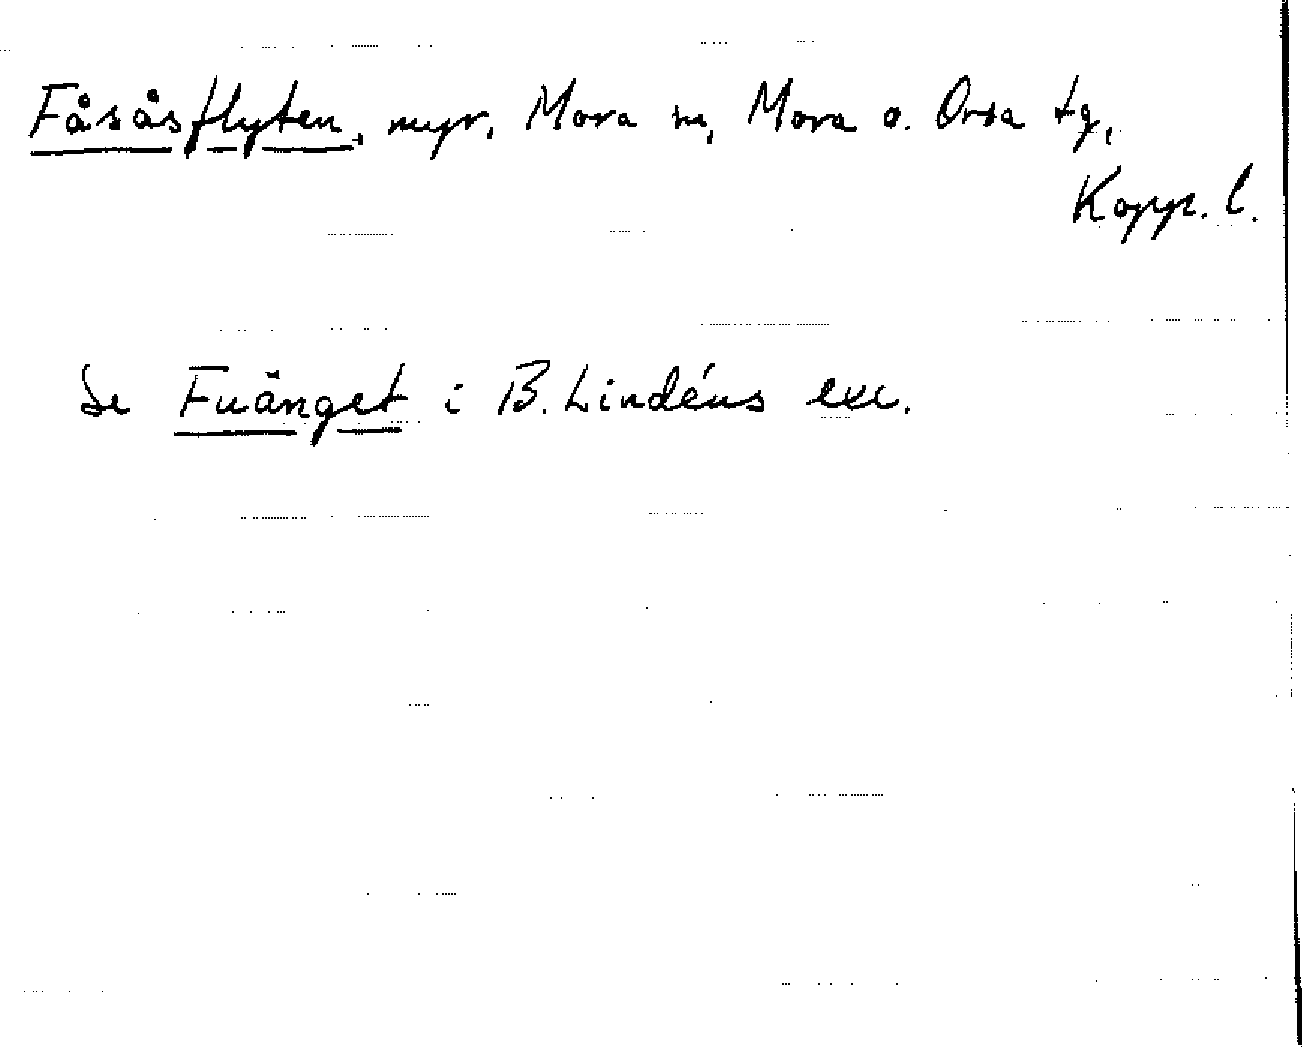 Fåsåsflyten, myr, Mora sn, Mora o. Orsa tg,
Kopp. l.
Se Fuänget i B. Lindéns exc.